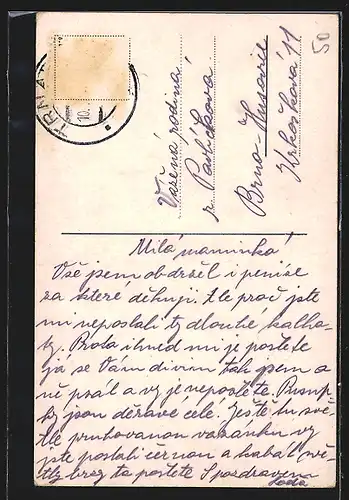 TRNAVA
10.
50
Vážená rodina
Pavlíčkova
Brno-Husovice
11
Milá maminko!
Vše jsem obdržel i peníze
za které děkuji. Ale proč jste
mi neposlali ty dlouhé kalho-
ty. Proto ihned mi je pošlete
já se Vám divím tak jsem a
ně psál a vy je nepošlete. Pump-
ky jsou děravé celé. Ještě tu svě-
tle pruhovanou vázanku vy
jste poslali černou a kabát svě-
tlý brzy to pošlete S pozdravem